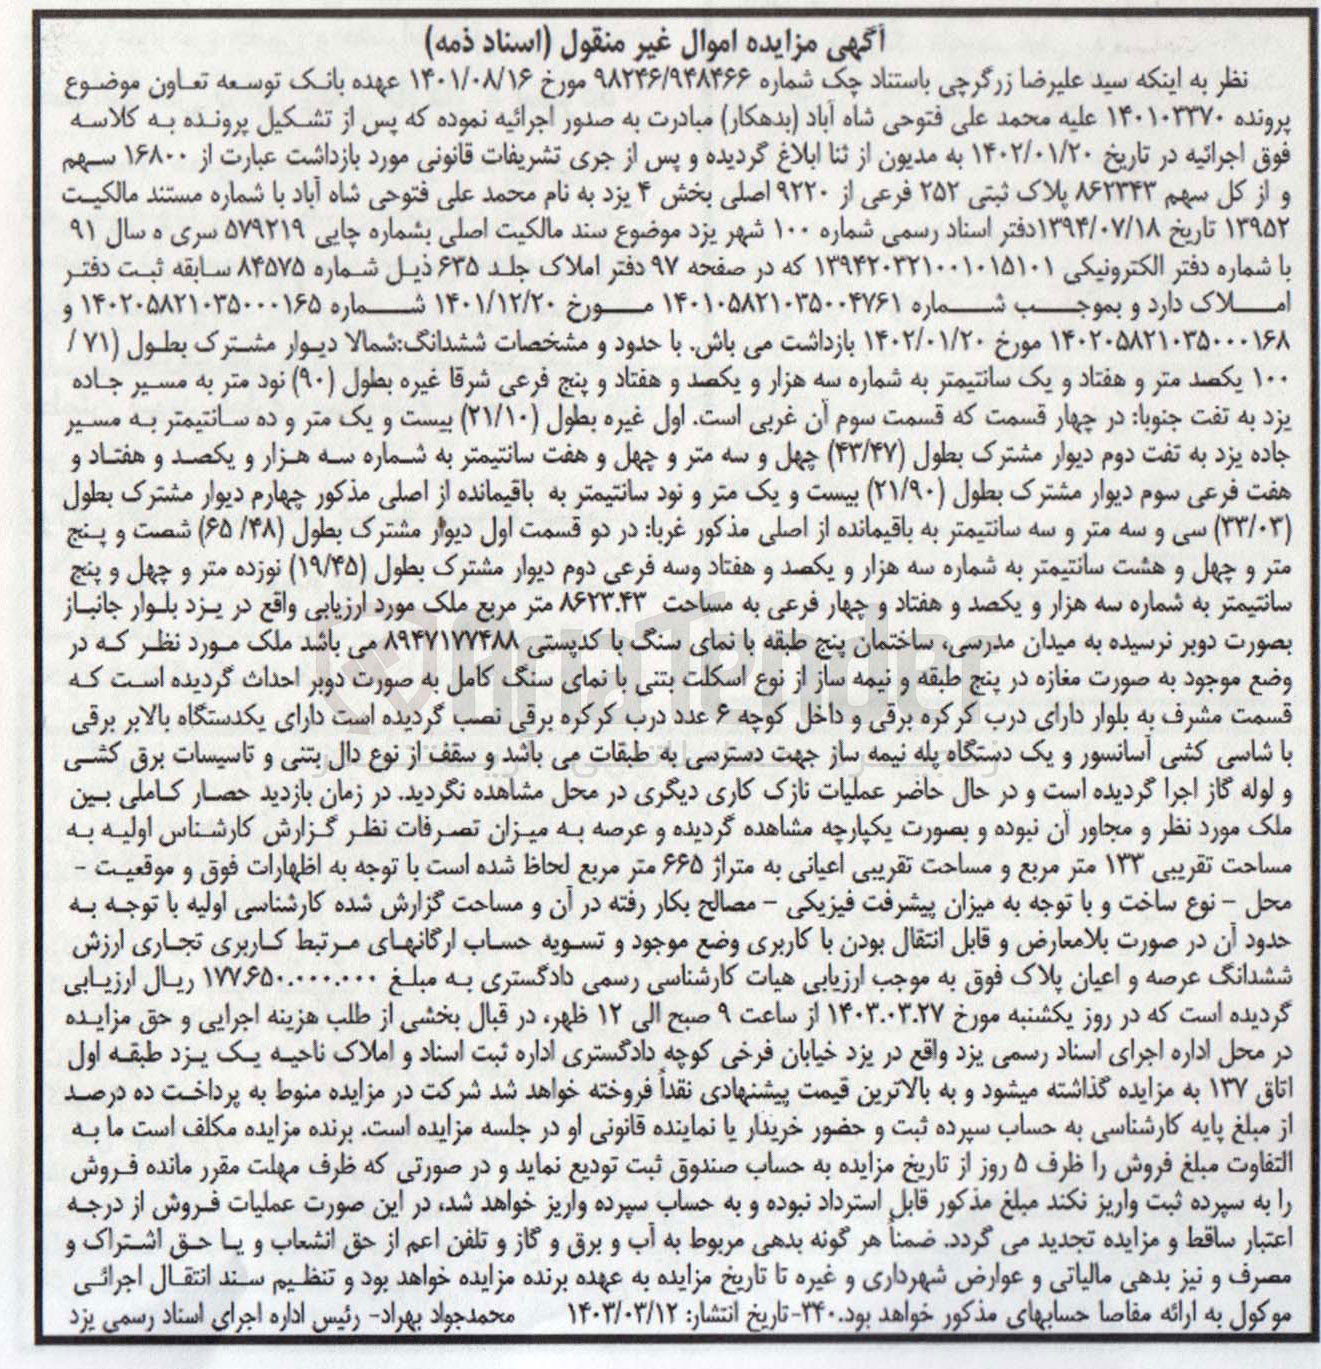 آگهی مزایده اموال غیر منقول (اسناد ذمه)
نظر به اینکه سید علیرضا زرگرچی باستناد چک شماره ۹۸۲۴۶/۹۴۸۴۶۶ مورخ ۱۴۰۱/۰۸/۱۶ عهده بانک توسعه تعاون موضوع
پرونده ۱۴۰۱۰۳۳۷۰ علیه محمد علی فتوحی شاه آباد (بدهکار) مبادرت به صدور اجرائیه نموده که پس از تشکیل پرونده به کلاسه
فوق اجرائیه در تاریخ ۱۴۰۲/۰۱/۲۰ به مدیون از ثنا ابلاغ گردیده و پس از جری تشریفات قانونی مورد بازداشت عبارت از ۱۶۸۰۰ سهم
و از کل سهم ۸۶۲۳۴۳ پلاک ثبتی ۲۵۲ فرعی از ۹۲۲۰ اصلی بخش ۴ یزد به نام محمد علی فتوحی شاه آباد با شماره مستند مالکیت
۱۳۹۵۲ تاریخ ۱۳۹۴/۰۷/۱۸دفتر اسناد رسمی شماره ۱۰۰ شهر یزد موضوع سند مالکیت اصلی بشماره چاپی ۵۷۹۲۱۹ سری ه سال ۹۱
با شماره دفتر الکترونیکی ۱۳۹۴۲۰۳۲۱۰۰۱۰۱۵۱۰۱ که در صفحه ۹۷ دفتر املاک جلد ۶۳۵ ذیل شماره ۸۴۵۷۵ سابقه ثبت دفتر
املاک دارد و بموجب شماره ۱۴۰۱۰۵۸۲۱۰۳۵۰۰۴۷۶۱ مورخ ۱۴۰۱/۱۲/۲۰ شماره ۱۴۰۲۰۵۸۲۱۰۳۵۰۰۰۱۶۵ و
۱۴۰۲۰۵۸۲۱۰۳۵۰۰۰۱۶۸ مورخ ۱۴۰۲/۰۱/۲۰ بازداشت می باش. با حدود و مشخصات ششدانگ:شمالا دیوار مشترک بطول (۷۱ /
۱۰۰ یکصد متر و هفتاد و یک سانتیمتر به شماره سه هزار و یکصد و هفتاد و پنج فرعی شرقا غیره بطول (۹۰) نود متر به مسیر جاده
یزد به تفت جنوبا: در چهار قسمت که قسمت سوم آن غربی است. اول غیره بطول (۲۱/۱۰) بیست و یک متر و ده سانتیمتر به مسیر
جاده یزد به تفت دوم دیوار مشترک بطول (۴۳/۴۷) چهل و سه متر و چهل و هفت سانتیمتر به شماره سه هزار و یکصد و هفتاد و
هفت فرعی سوم دیوار مشترک بطول (۲۱/۹۰) بیست و یک متر و نود سانتیمتر به باقیمانده از اصلی مذکور چهارم دیوار مشترک بطول
(۳۳/۰۳) سی و سه متر و سه سانتیمتر به باقیمانده از اصلی مذکور غربا: در دو قسمت اول دیوار مشترک بطول (۴۸/ ۶۵) شصت و پنج
متر و چهل و هشت سانتیمتر به شماره سه هزار و یکصد و هفتاد وسه فرعی دوم دیوار مشترک بطول (۱۹/۴۵) نوزده متر و چهل و پنج
سانتیمتر به شماره سه هزار و یکصد و هفتاد و چهار فرعی به مساحت ۸۶۲۳.۴۳ متر مربع ملک مورد ارزیابی واقع در یزد بلوار جانباز
بصورت دوبر نرسیده به میدان مدرسی، ساختمان پنج طبقه با نمای سنگ با کدپستی ۸۹۴۷۱۷۷۴۸۸ می باشد ملک مورد نظر که در
وضع موجود به صورت مغازه در پنج طبقه و نیمه ساز از نوع اسکلت بتنی با نمای سنگ کامل به صورت دوبر احداث گردیده است که
قسمت مشرف به بلوار دارای درب کرکره برقی و داخل کوچه ۶ عدد درب کرکره برقی نصب گردیده است دارای یکدستگاه بالابر برقی
با شاسی کشی آسانسور و یک دستگاه پله نیمه ساز جهت دسترسی به طبقات می باشد و سقف از نوع دال بتنی و تاسیسات برق کشی
و لوله گاز اجرا گردیده است و در حال حاضر عملیات نازک کاری دیگری در محل مشاهده نگردید. در زمان بازدید حصار کاملی بین
ملک مورد نظر و مجاور آن نبوده و بصورت یکپارچه مشاهده گردیده و عرصه به میزان تصرفات نظر گزارش کارشناس اولیه به
مساحت تقریبی ۱۳۳ متر مربع و مساحت تقریبی اعیانی به متراژ ۶۶۵ متر مربع لحاظ شده است با توجه به اظهارات فوق و موقعیت -
محل - نوع ساخت و با توجه به میزان پیشرفت فیزیکی - مصالح بکار رفته در آن و مساحت گزارش شده کارشناسی اولیه با توجه به
حدود آن در صورت بلامعارض و قابل انتقال بودن با کاربری وضع موجود و تسویه حساب ارگانهای مرتبط کاربری تجاری ارزش
ششدانگ عرصه و اعیان پلاک فوق به موجب ارزیابی هیات کارشناسی رسمی دادگستری به مبلغ ۱۷۷.۶۵۰.۰۰۰.۰۰۰ ریال ارزیابی
گردیده است که در روز یکشنبه مورخ ۱۴۰۳.۰۳.۲۷ از ساعت ۹ صبح الی ۱۲ ظهر، در قبال بخشی از طلب هزینه اجرایی و حق مزایده
در محل اداره اجرای اسناد رسمی یزد واقع در یزد خیابان فرخی کوچه دادگستری اداره ثبت اسناد و املاک ناحیه یک یزد طبقه اول
اتاق ۱۳۷ به مزایده گذاشته میشود و به بالاترین قیمت پیشنهادی نقداً فروخته خواهد شد شرکت در مزایده منوط به پرداخت ده درصد
از مبلغ پایه کارشناسی به حساب سپرده ثبت و حضور خریدار یا نماینده قانونی او در جلسه مزایده است. برنده مزایده مکلف است ما به
التفاوت مبلغ فروش را ظرف ۵ روز از تاریخ مزایده به حساب صندوق ثبت تودیع نماید و در صورتی که ظرف مهلت مقرر مانده فروش
را به سپرده ثبت واریز نکند مبلغ مذکور قابل استرداد نبوده و به حساب سپرده واریز خواهد شد، در این صورت عملیات فروش از درجه
اعتبار ساقط و مزایده تجدید می گردد. ضمناً هر گونه بدهی مربوط به آب و برق و گاز و تلفن اعم از حق انشعاب و یا حق اشتراک و
مصرف و نیز بدهی مالیاتی و عوارض شهرداری و غیره تا تاریخ مزایده به عهده برنده مزایده خواهد بود و تنظیم سند انتقال اجرائی
موکول به ارائه مفاصا حسابهای مذکور خواهد بود.۳۴۰-تاریخ انتشار: ۱۴۰۳/۰۳/۱۲ محمدجواد بهراد- رئیس اداره اجرای اسناد رسمی یزد
AriaTender